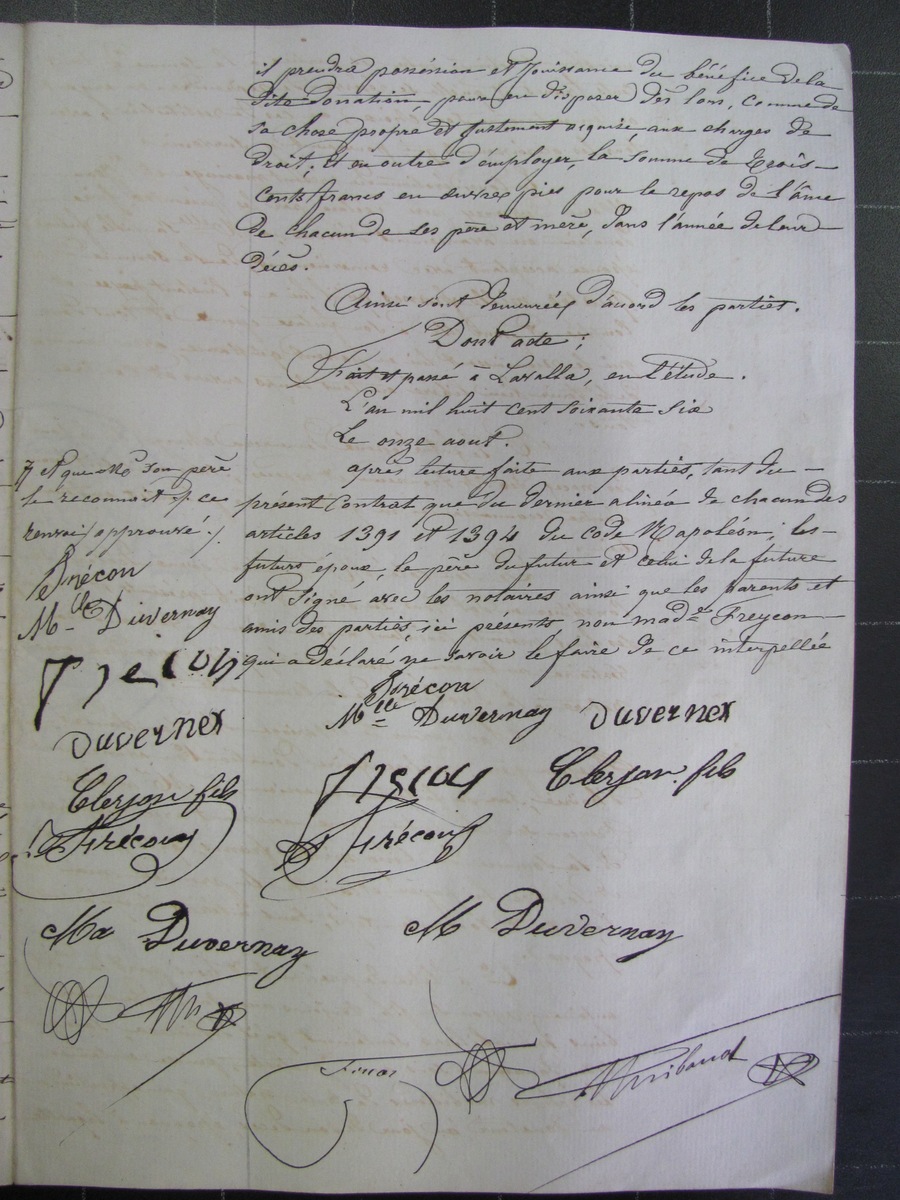 il prendra possession et jouissance du bénéfice de la
dite donation, pour en disposer dès lors, comme de
sa chose propre et justement acquise, aux charges de
droit; Et en outre d'employer, la somme de trois-
cents francs en œuvres pies pour le repos de l'âme
de chacun de ses père et mère, dans l'année de leur
décès.
Ainsi sont demeurées d'accord les parties.
Dont acte;
Fait et passé à Lavalla, en l'étude.
L'an mil huit cent soixante six
Le onze aout.
après lecture faite aux parties, tant du
présent contrat que du dernier alinéa de chacun des
articles 1391 et 1394 du code Napoléon; les
futurs époux, le père du futur et celui de la future
ont signé avec les notaires ainsi que les parents et
amis des parties, ici présents non mad.e Freycon
qui a déclaré ne savoir le faire de ce interpellée
et que son père
le reconnait ce
renvoi approuvé ./.
Frécon
M.lle Duvernay
Duvernex
Clerjon fils
Frécon
Ma Duvernay
Frécon
M.lle Duvernay
Duvernex
Clerjon fils
Frécon
M Duvernay